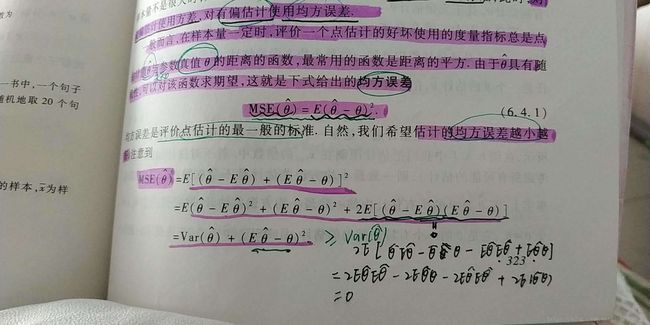 对有偏估计使用均方误差.
一般而言,在样本量一定时,评价一个点估计的好坏使用的度量指标总是点
参数真值 θ 的距离的函数,最常用的函数是距离的平方.由于θ̂具有随
可以对该函数求期望,这就是下式给出的均方误差
MSE(θ̂) = E(θ̂ − θ)². (6.4.1)
均方误差是评价点估计的最一般的标准.自然,我们希望估计的均方误差越小越
注意到
MSE(θ̂) =E[(θ̂ − Eθ̂) + (Eθ̂ − θ)]²
=E(θ̂ − Eθ̂)² + (Eθ̂ − θ)² + 2E[(θ̂ − Eθ̂)(Eθ̂ − θ)]
=Var(θ̂) + (Eθ̂ − θ)². ≥ Var(θ̂)
323
=0
一书中,一个句子
随机地取 20 个句
的样本,x̄为样